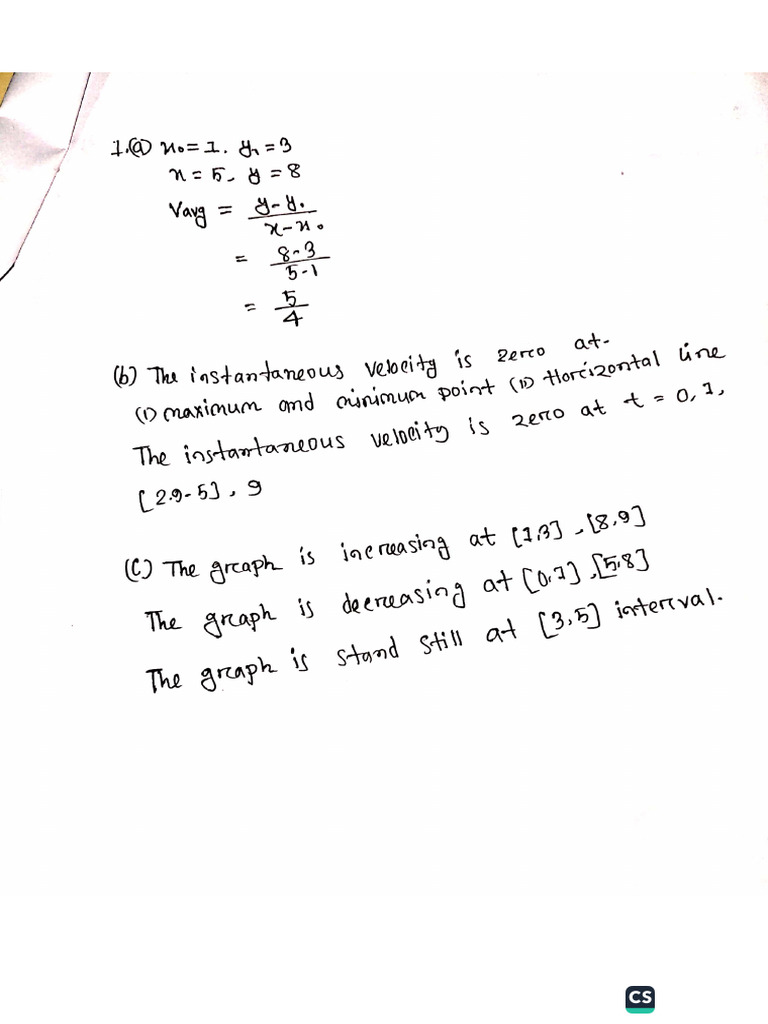 1.(a) x₀ = 1. y₁ = 3
x = 5, y = 8
Vavg = y - y₀ / x - x₀
= 8-3 / 5-1
= 5 / 4
(b) The instantaneous velocity is zero at-
(i) maximum and minimum point (ii) Horizontal line
The instantaneous velocity is zero at t = 0, 1,
[2.9-5], 9
(C) The graph is increasing at [1,3], [8,9]
The graph is decreasing at [0,1], [5,8]
The graph is stand still at [3,5] interval.
CS